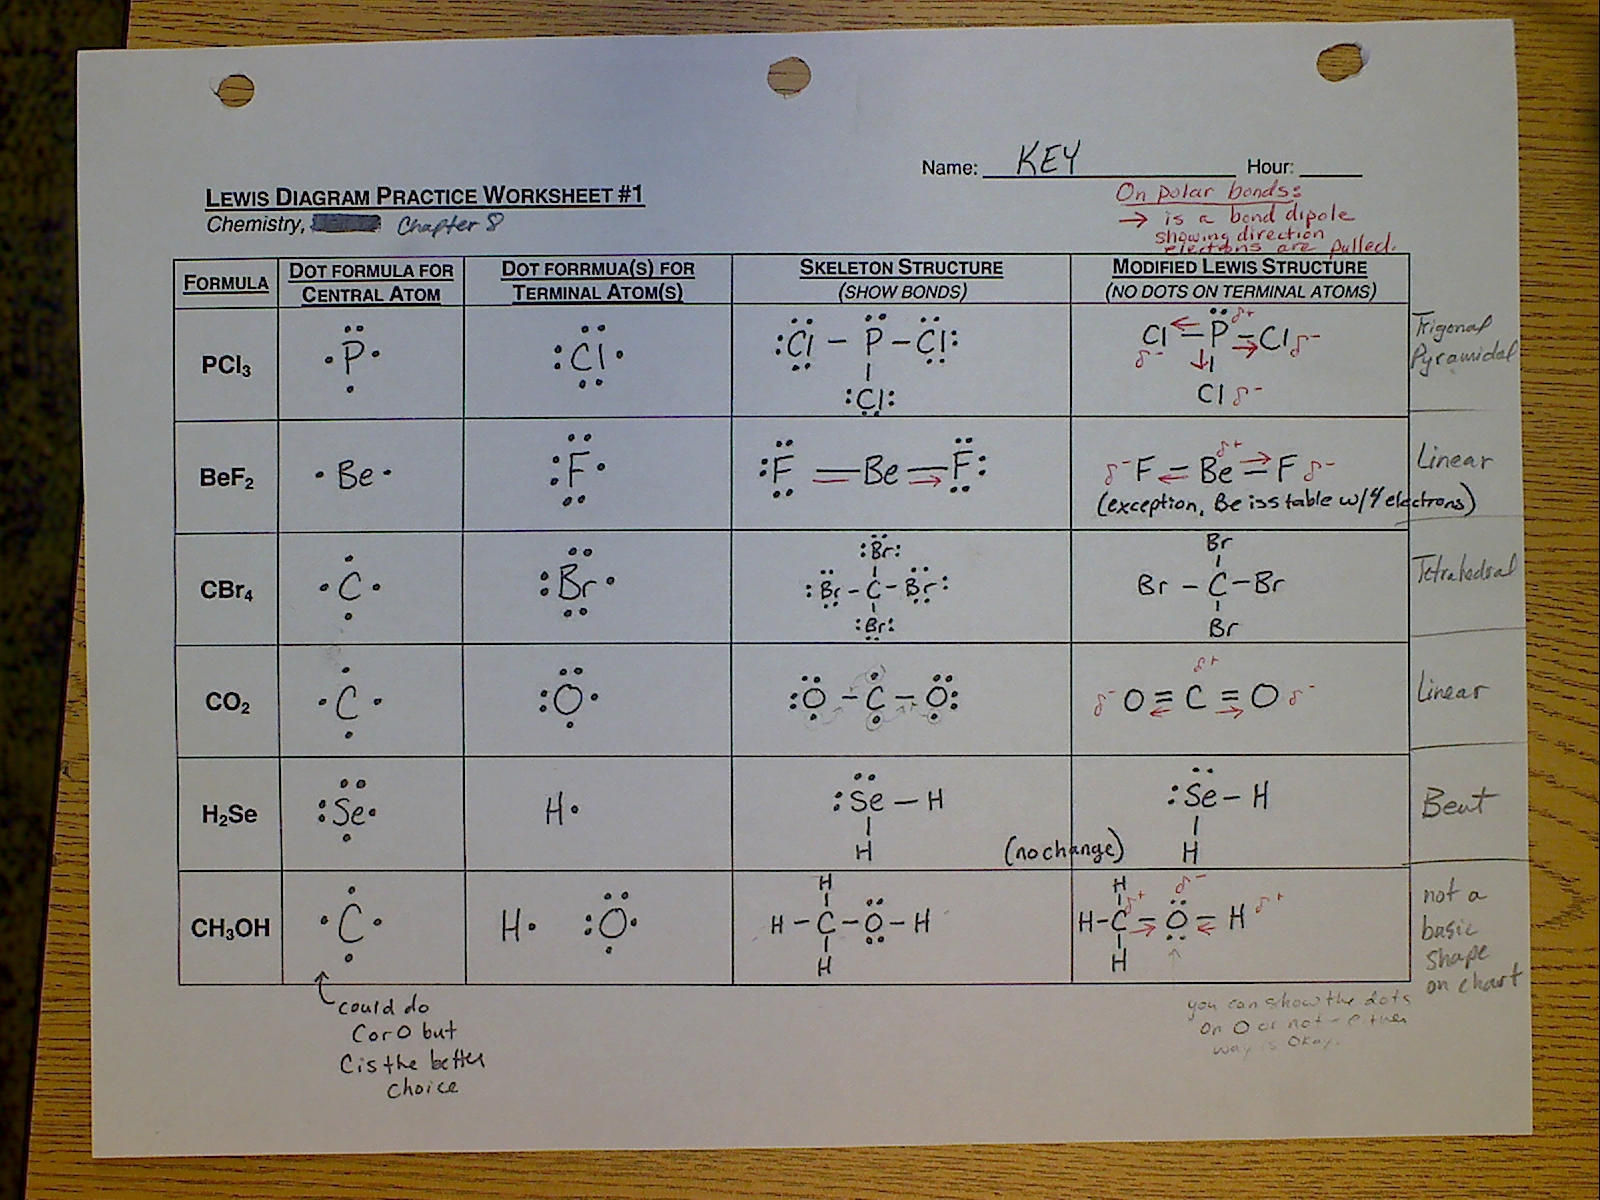 Name: KEY Hour:
LEWIS DIAGRAM PRACTICE WORKSHEET #1
Chemistry, Chapter 8
On polar bonds:
→ is a bond dipole
showing direction
electrons are pulled.
FORMULA
DOT FORMULA FOR
CENTRAL ATOM
DOT FORRMUA(S) FOR
TERMINAL ATOM(S)
SKELETON STRUCTURE
(SHOW BONDS)
MODIFIED LEWIS STRUCTURE
(NO DOTS ON TERMINAL ATOMS)
PCl₃
P
Cl
Cl – P – Cl
Cl
Cl – P – Cl
δ+
δ- δ-
Cl δ-
Trigonal
Pyramidal
BeF₂
Be
F
F — Be — F
δ- F – Be – F δ-
δ+
(exception, Be is stable w/ 4 electrons)
Linear
CBr₄
C
Br
Br
Br – C – Br
Br
Br
Br – C – Br
Br
Tetrahedral
CO₂
C
O
O – C – O
δ+
δ- O = C = O δ-
Linear
H₂Se
Se
H
Se – H
H
(no change)
Se – H
H
Bent
CH₃OH
C
H O
H
H – C – O – H
H
H
H – C – O – H
H
δ+ δ- δ+
not a
basic
shape
on chart
could do
C or O but
C is the better
choice
you can show the dots
on O or not – either
way is okay.